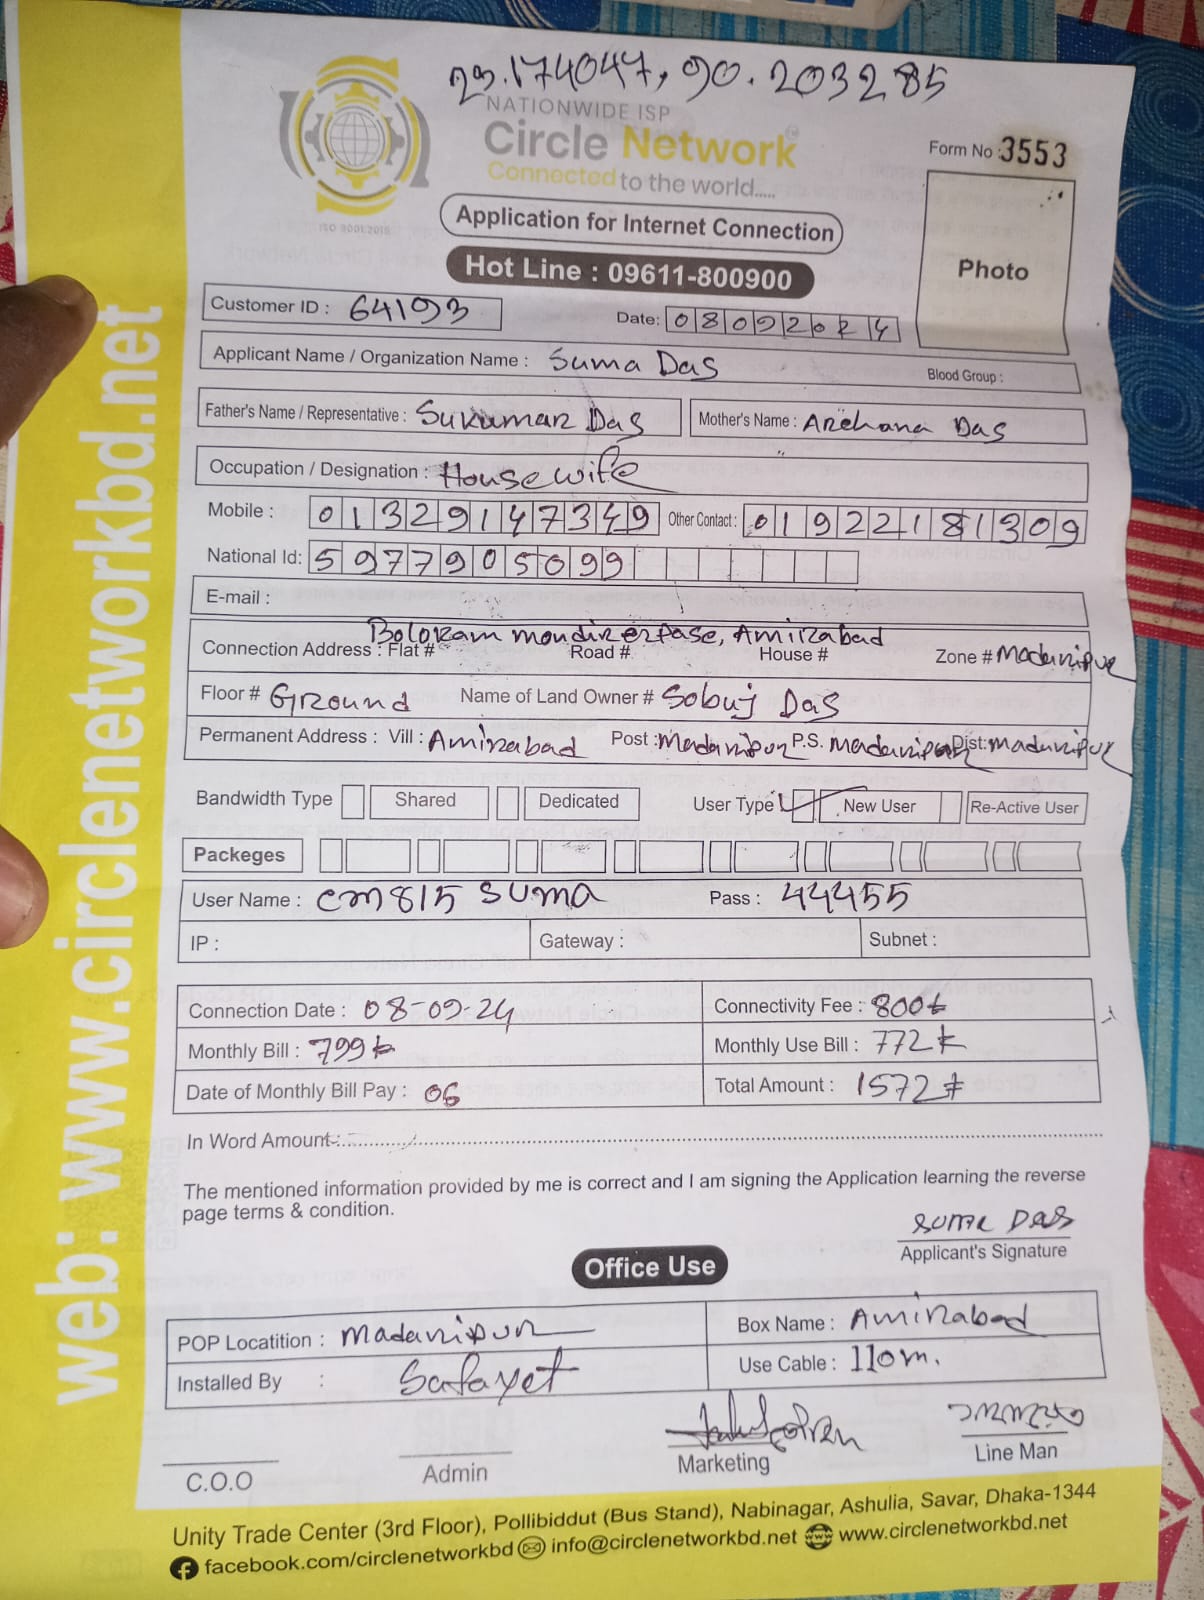 23.174047, 90.203285
NATIONWIDE ISP
Circle Network
Connected to the world.....
ISO 9001:2015
Form No : 3553
Application for Internet Connection
Photo
Hot Line : 09611-800900
Customer ID : 64193
Date: 08092024
Applicant Name / Organization Name : Suma Das
Blood Group :
Father's Name / Representative : Sukumar Das Mother's Name : Archana Das
Occupation / Designation : House wife
Mobile : 01329147349 Other Contact : 01922181309
National Id: 5977905099
E-mail :
Boloram mondirerpase, Amirabad
Connection Address : Flat # Road # House # Zone # Madaripur
Floor # Ground Name of Land Owner # Sobuj Das
Permanent Address : Vill : Amirabad Post : Madaripur P.S. Madaripur Dist: Madaripur
Bandwidth Type Shared Dedicated User Type New User Re-Active User
Packeges
User Name : cm815 suma Pass : 44455
IP : Gateway : Subnet :
Connection Date : 08-09-24 Connectivity Fee : 800৳
Monthly Bill : 799৳ Monthly Use Bill : 772৳
Date of Monthly Bill Pay : 06 Total Amount : 1572৳
In Word Amount :
The mentioned information provided by me is correct and I am signing the Application learning the reverse
page terms & condition.
Suma Das
Applicant's Signature
Office Use
POP Locatition : Madaripur Box Name : Amirabad
Installed By : Safayet Use Cable : 110m.
C.O.O Admin Marketing Line Man
Unity Trade Center (3rd Floor), Pollibiddut (Bus Stand), Nabinagar, Ashulia, Savar, Dhaka-1344
facebook.com/circlenetworkbd info@circlenetworkbd.net www.circlenetworkbd.net
web: www.circlenetworkbd.net